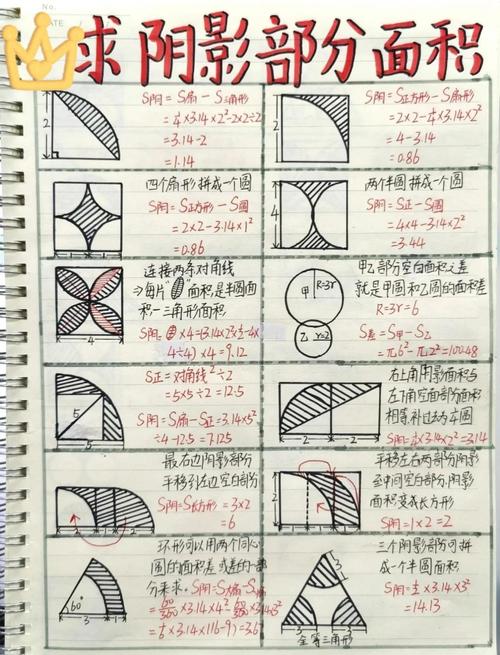 No.
DATE
求阴影部分面积
2
S阴= S扇-S三角形
=¼×3.14×2²-2×2÷2
=3.14-2
=1.14
2
S阴= S正方形-S扇形
=2×2-¼×3.14×2²
=4-3.14
=0.86
四个扇形拼成一个圆
S阴= S正方形-S圆
=2×2-3.14×1²
=0.86
2
4
两个半圆拼成一个圆
S阴=S正-S圆
=4×4-3.14×2²
=3.44
连接两条对角线
⇒每片" "面积是半圆面
积-三角形面积
×4=(3.14×2²÷2-4×
4÷4)×4=9.12
4
甲乙部分空白面积之差
就是甲圆和乙圆的面积差
R=3r=6
S差=S甲-S乙
=π6²-π2²=100.48
甲
R=3r
乙
r=2
S正=对角线²÷2
=5×5÷2=12.5
S阴=S扇-S正=3.14×5²
÷4-12.5=7.125
5
5
右上角阴影面积与
左下角空白部分面积
相等补过去为¼圆
S阴=¼×3.14×2²=3.14
2
2
最右边阴影部分
平移到左边空白部分
S阴=S长方形=3×2
=6
平移左右两部分阴影
至中间空白部分,阴影
面积变成长方形
S阴=1×2=2
环形可以用两个同心
圆的面积差或差的一部
分来求. S阴=S大扇-S小
=60/360×3.14×4²-60/360×3.14×3²
=1/6×3.14×(16-9)=3.6
60°
3
1
三个阴影部分可拼
成一个半圆面积
S阴=½×3.14×3²
=14.13
3
3
全等三角形